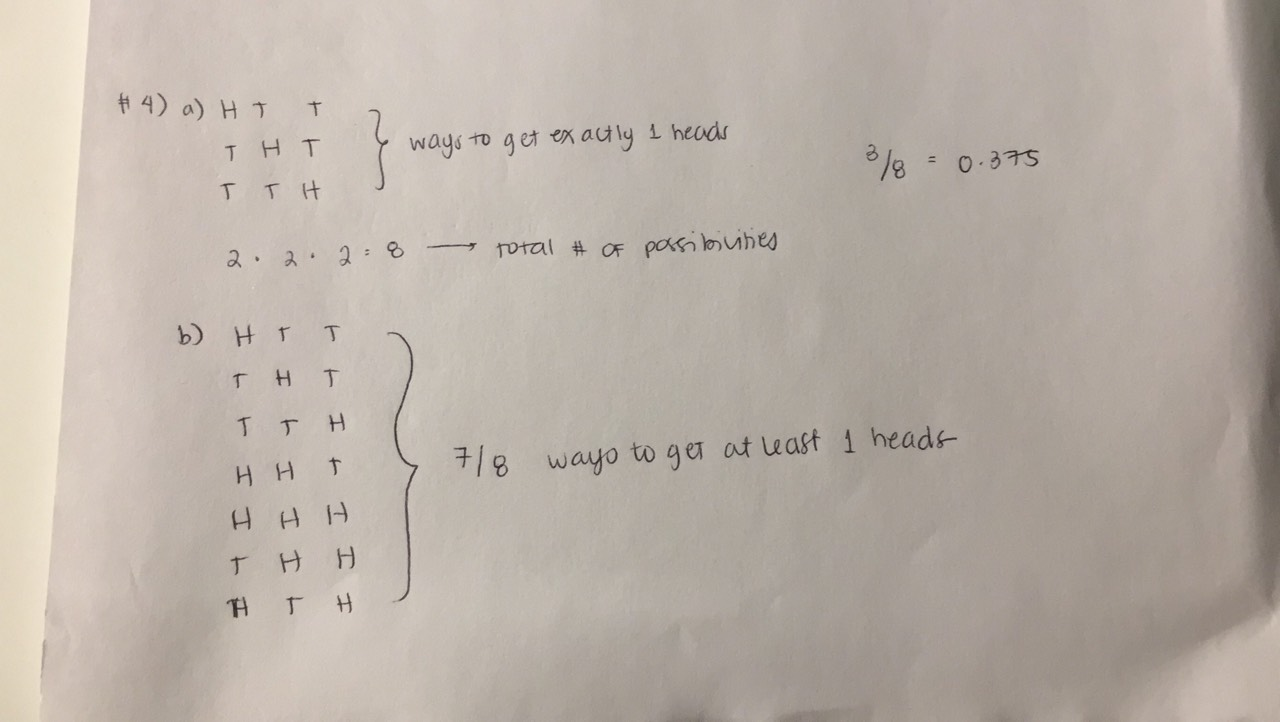 #4) a) H T T
T H T
T T H
} ways to get exactly 1 heads
3/8 = 0.375
2 · 2 · 2 = 8 → total # of possibilities
b) H T T
T H T
T T H
H H T
H H H
T H H
H T H
} 7/8 ways to get at least 1 heads